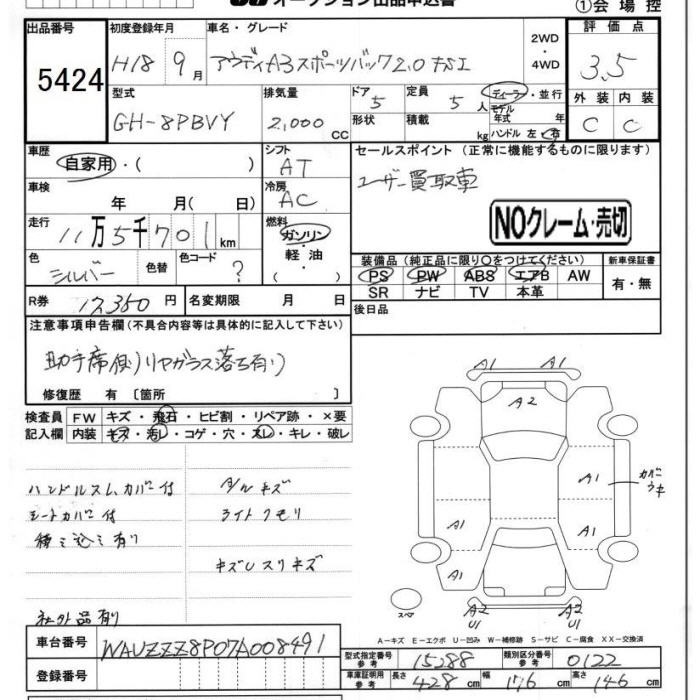 オークション出品申込書
①会場控
出品番号 初度登録年月 車名・グレード 評価点
5424 H18 9月 アウディA3スポーツバック2.0FSI 2WD・4WD 3.5
型式 排気量 ドア 5 定員 5人 ディーラー・並行 外装 内装
GH-8PBVY 2,000CC 形状 積載 kg モデル年式 年 ハンドル 左・右 C C
車歴 シフト セールスポイント (正常に機能するものに限ります)
自家用・( ) AT ユーザー買取車
車検 年 月( 日) 冷房 AC
走行 11万5千701km 燃料 ガソリン・軽油・( ) NOクレーム・売切
色 シルバー 色替 色コード ? 装備品 (純正品に限り○をつけてください) 新車保証書
PS PW ABS エアB AW 有・無
SR ナビ TV 本革
R券 12,350円 名変期限 月 日 後日品
注意事項申告欄(不具合内容等は具体的に記入して下さい)
助手席側リヤガラス落ち有り
修復歴 有 〔箇所 〕
検査員 FW キズ・飛石・ヒビ割・リペア跡・×要
記入欄 内装 キズ・汚レ・コゲ・穴・スレ・キレ・破レ
ハンドルスレ、カバー付 タルキズ
シートカバー付 ライトクモリ
積ミ込ミ有り
キズUスリキズ
社外品有り
A1 A1
A2
A1 カバーウキ
A1 A1
A1
スペア A2 U1 A2 U1
A-キズ E-エクボ U-凹み W-補修跡 S-サビ C-腐食 XX-交換済
車台番号 WAUZZZ8P07A008491
登録番号
型式指定番号 参考 15288 類別区分番号 参考 0122
車庫証明用 参考 長さ 428cm 幅 176cm 高さ 146cm